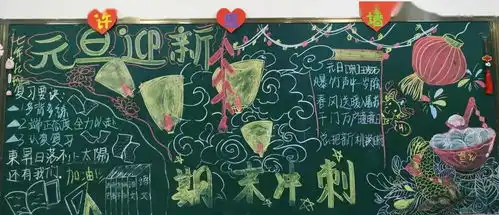 许愿墙
元旦迎新
复习要诀:
多背多练
端正态度全力以赴
认真复习
東昇日落不止太陽
还有我们,加油!
期末冲刺
元日[宋]王安石
爆竹声中一岁除
春风送暖入屠苏
千门万户曈曈日
总把新桃换旧符